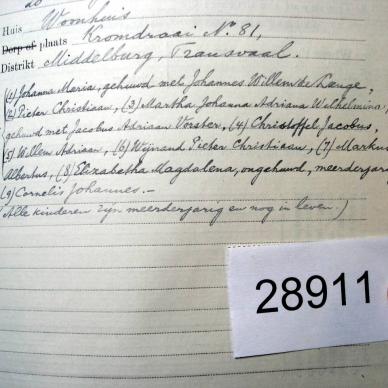 do
Huis Woonhuis
Dorp of plaats Kromdraai No. 81,
Distrikt Middelburg, Transvaal.
(1) Johanna Maria, gehuwd met Johannes Willem de Lange,
(2) Pieter Christiaan, (3) Martha Johanna Adriana Wilhelmina,
gehuwd met Jacobus Adriaan Vorster, (4) Christoffel Jacobus,
(5) Willem Adriaan, (6) Wijnand Pieter Christiaan, (7) Markus
Albertus, (8) Elizabetha Magdalena, ongehuwd, meerderjarig
(9) Cornelis Johannes. —
(Alle kinderen zijn meerderjarig en nog in leven.)
28911